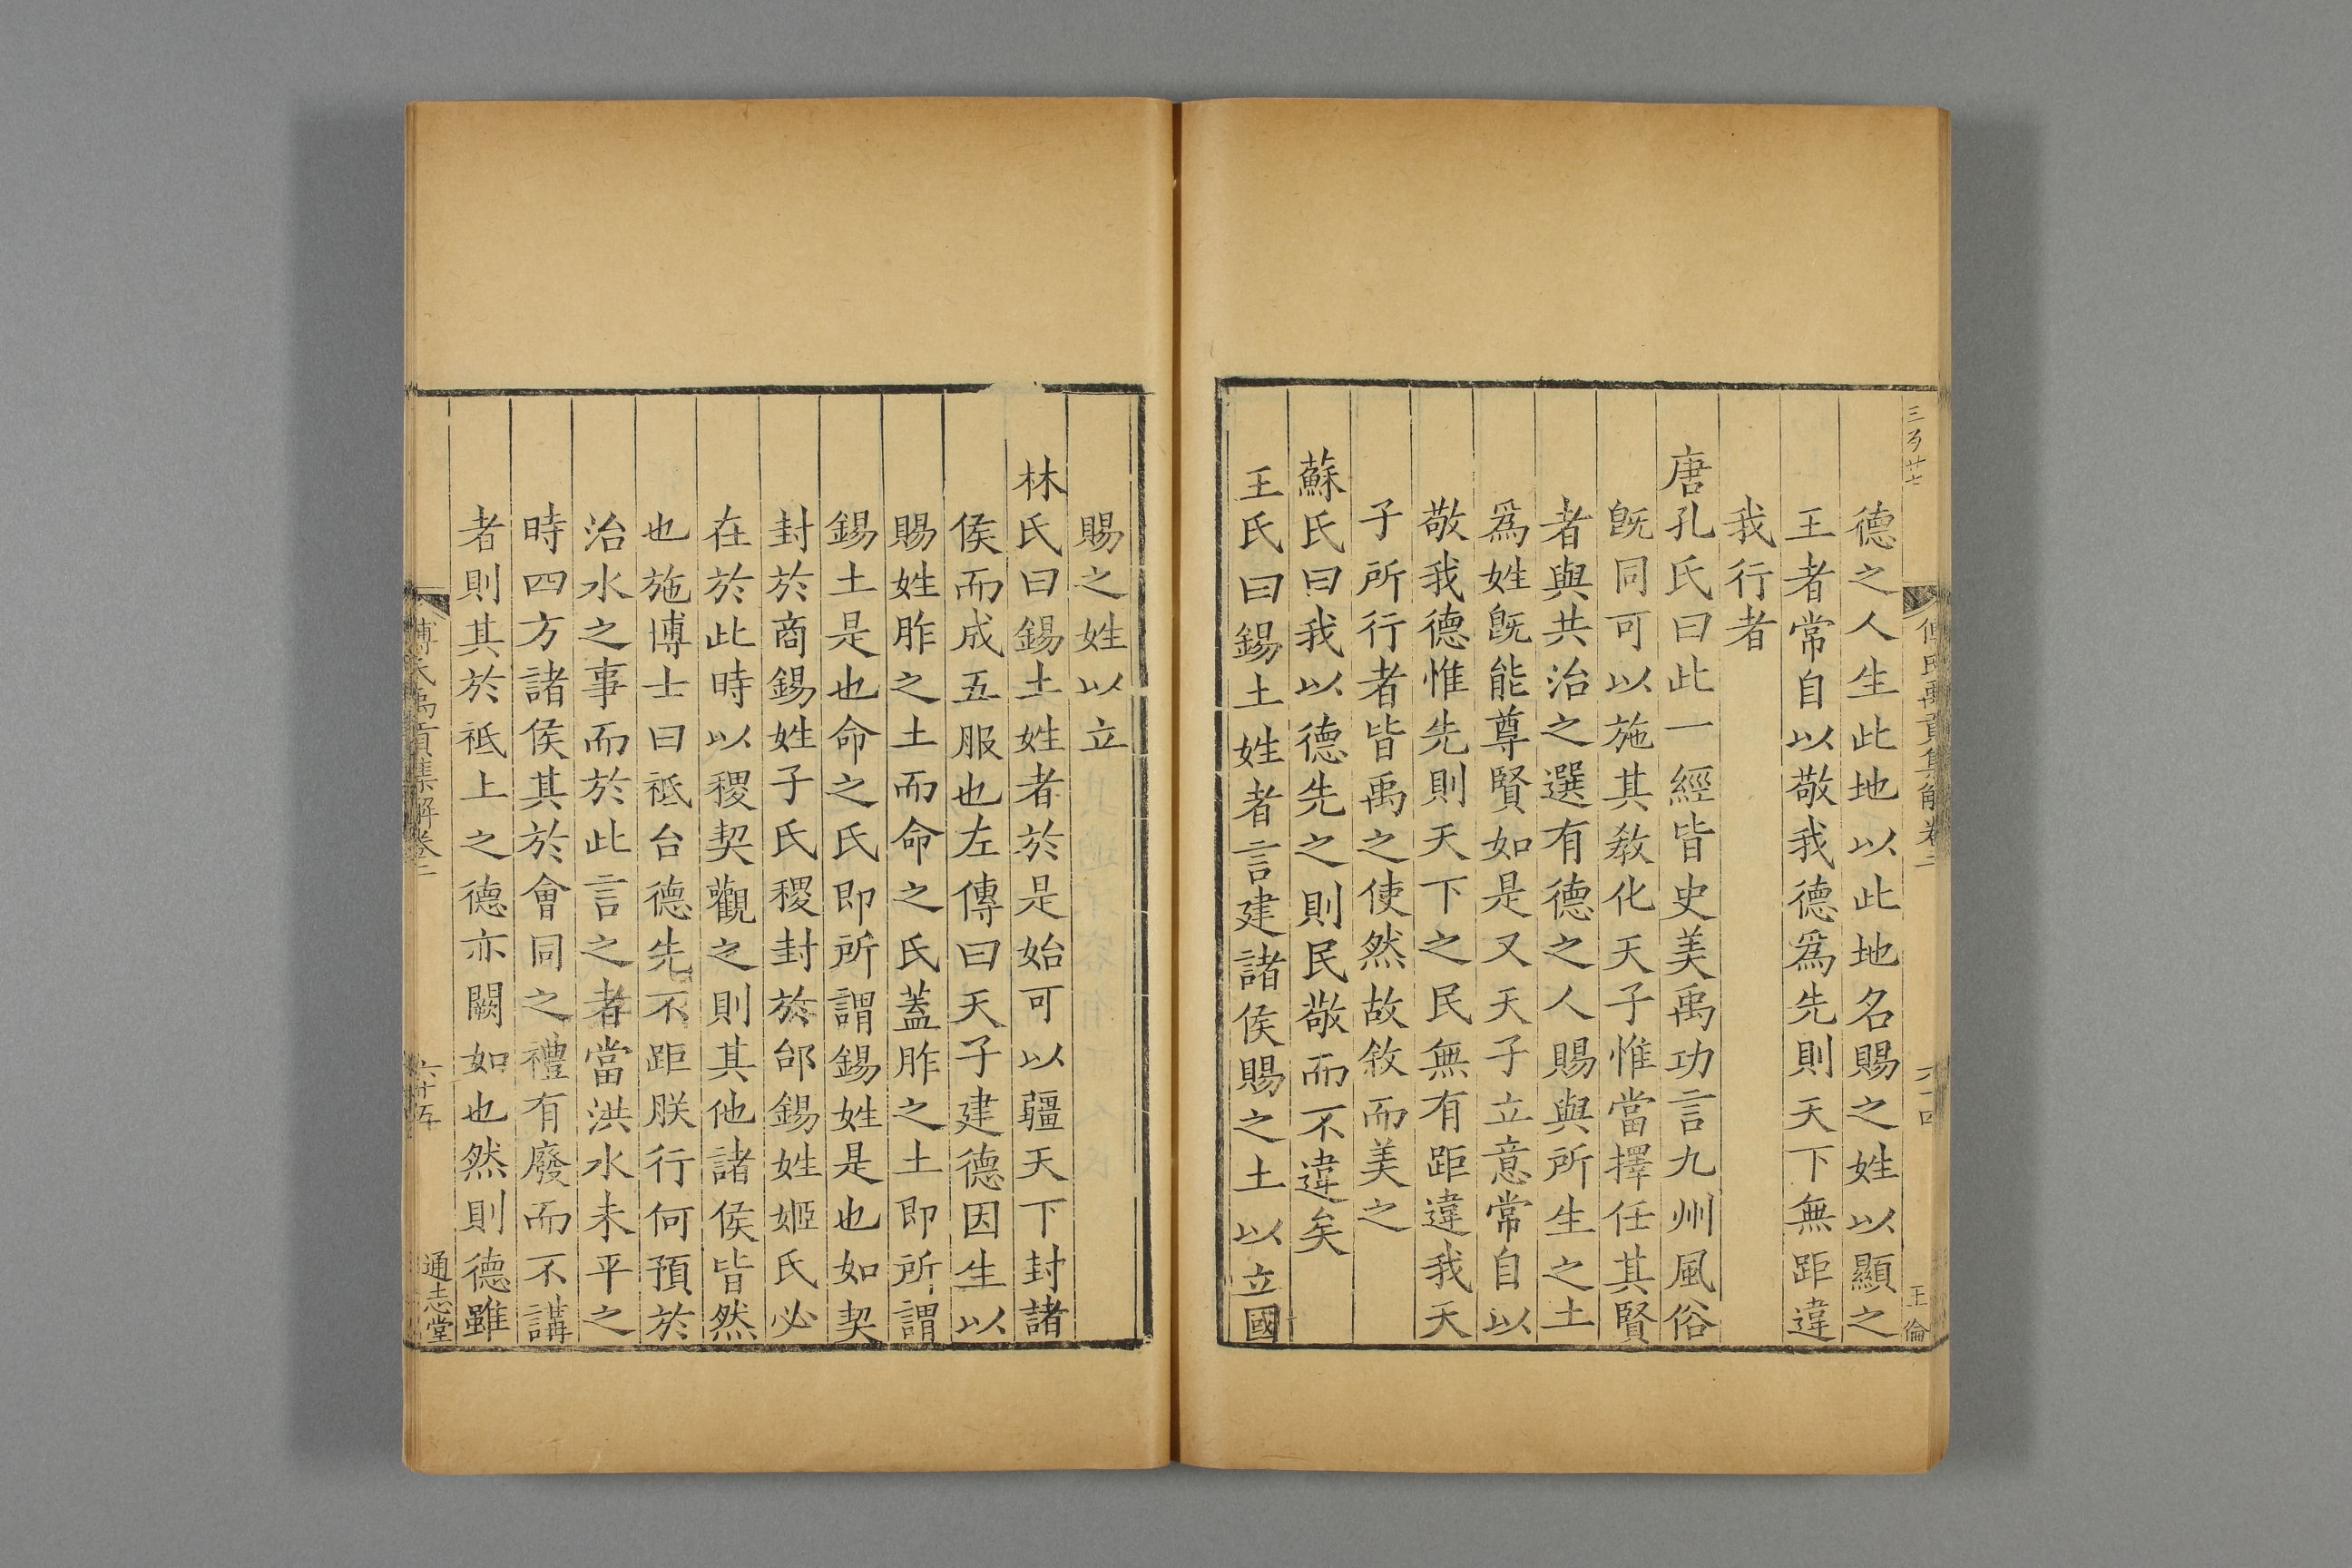 德之人生此地以此地名賜之姓以顯之
王者常自以敬我德爲先則天下無距違
我行者
唐孔氏曰此一經皆史美禹功言九州風俗
旣同可以施其敎化天子惟當擇任其賢
者與共治之選有德之人賜與所生之土
爲姓旣能尊賢如是又天子立意常自以
敬我德惟先則天下之民無有距違我天
子所行者皆禹之使然故敘而美之
蘇氏曰我以德先之則民敬而不違矣
王氏曰錫土姓者言建諸侯賜之土以立國
賜之姓以立
林氏曰錫土姓者於是始可以疆天下封諸
侯而成五服也左傳曰天子建德因生以
賜姓胙之土而命之氏蓋胙之土即所謂
錫土是也命之氏即所謂錫姓是也如契
封於商錫姓子氏稷封於邰錫姓姬氏必
在於此時以稷契觀之則其他諸侯皆然
也施博士曰祗台德先不距朕行何預於
治水之事而於此言之者當洪水未平之
時四方諸侯其於會同之禮有廢而不講
者則其於祗上之德亦闕如也然則德雖
傅氏禹貢集解卷二
六十五
通志堂
王倫